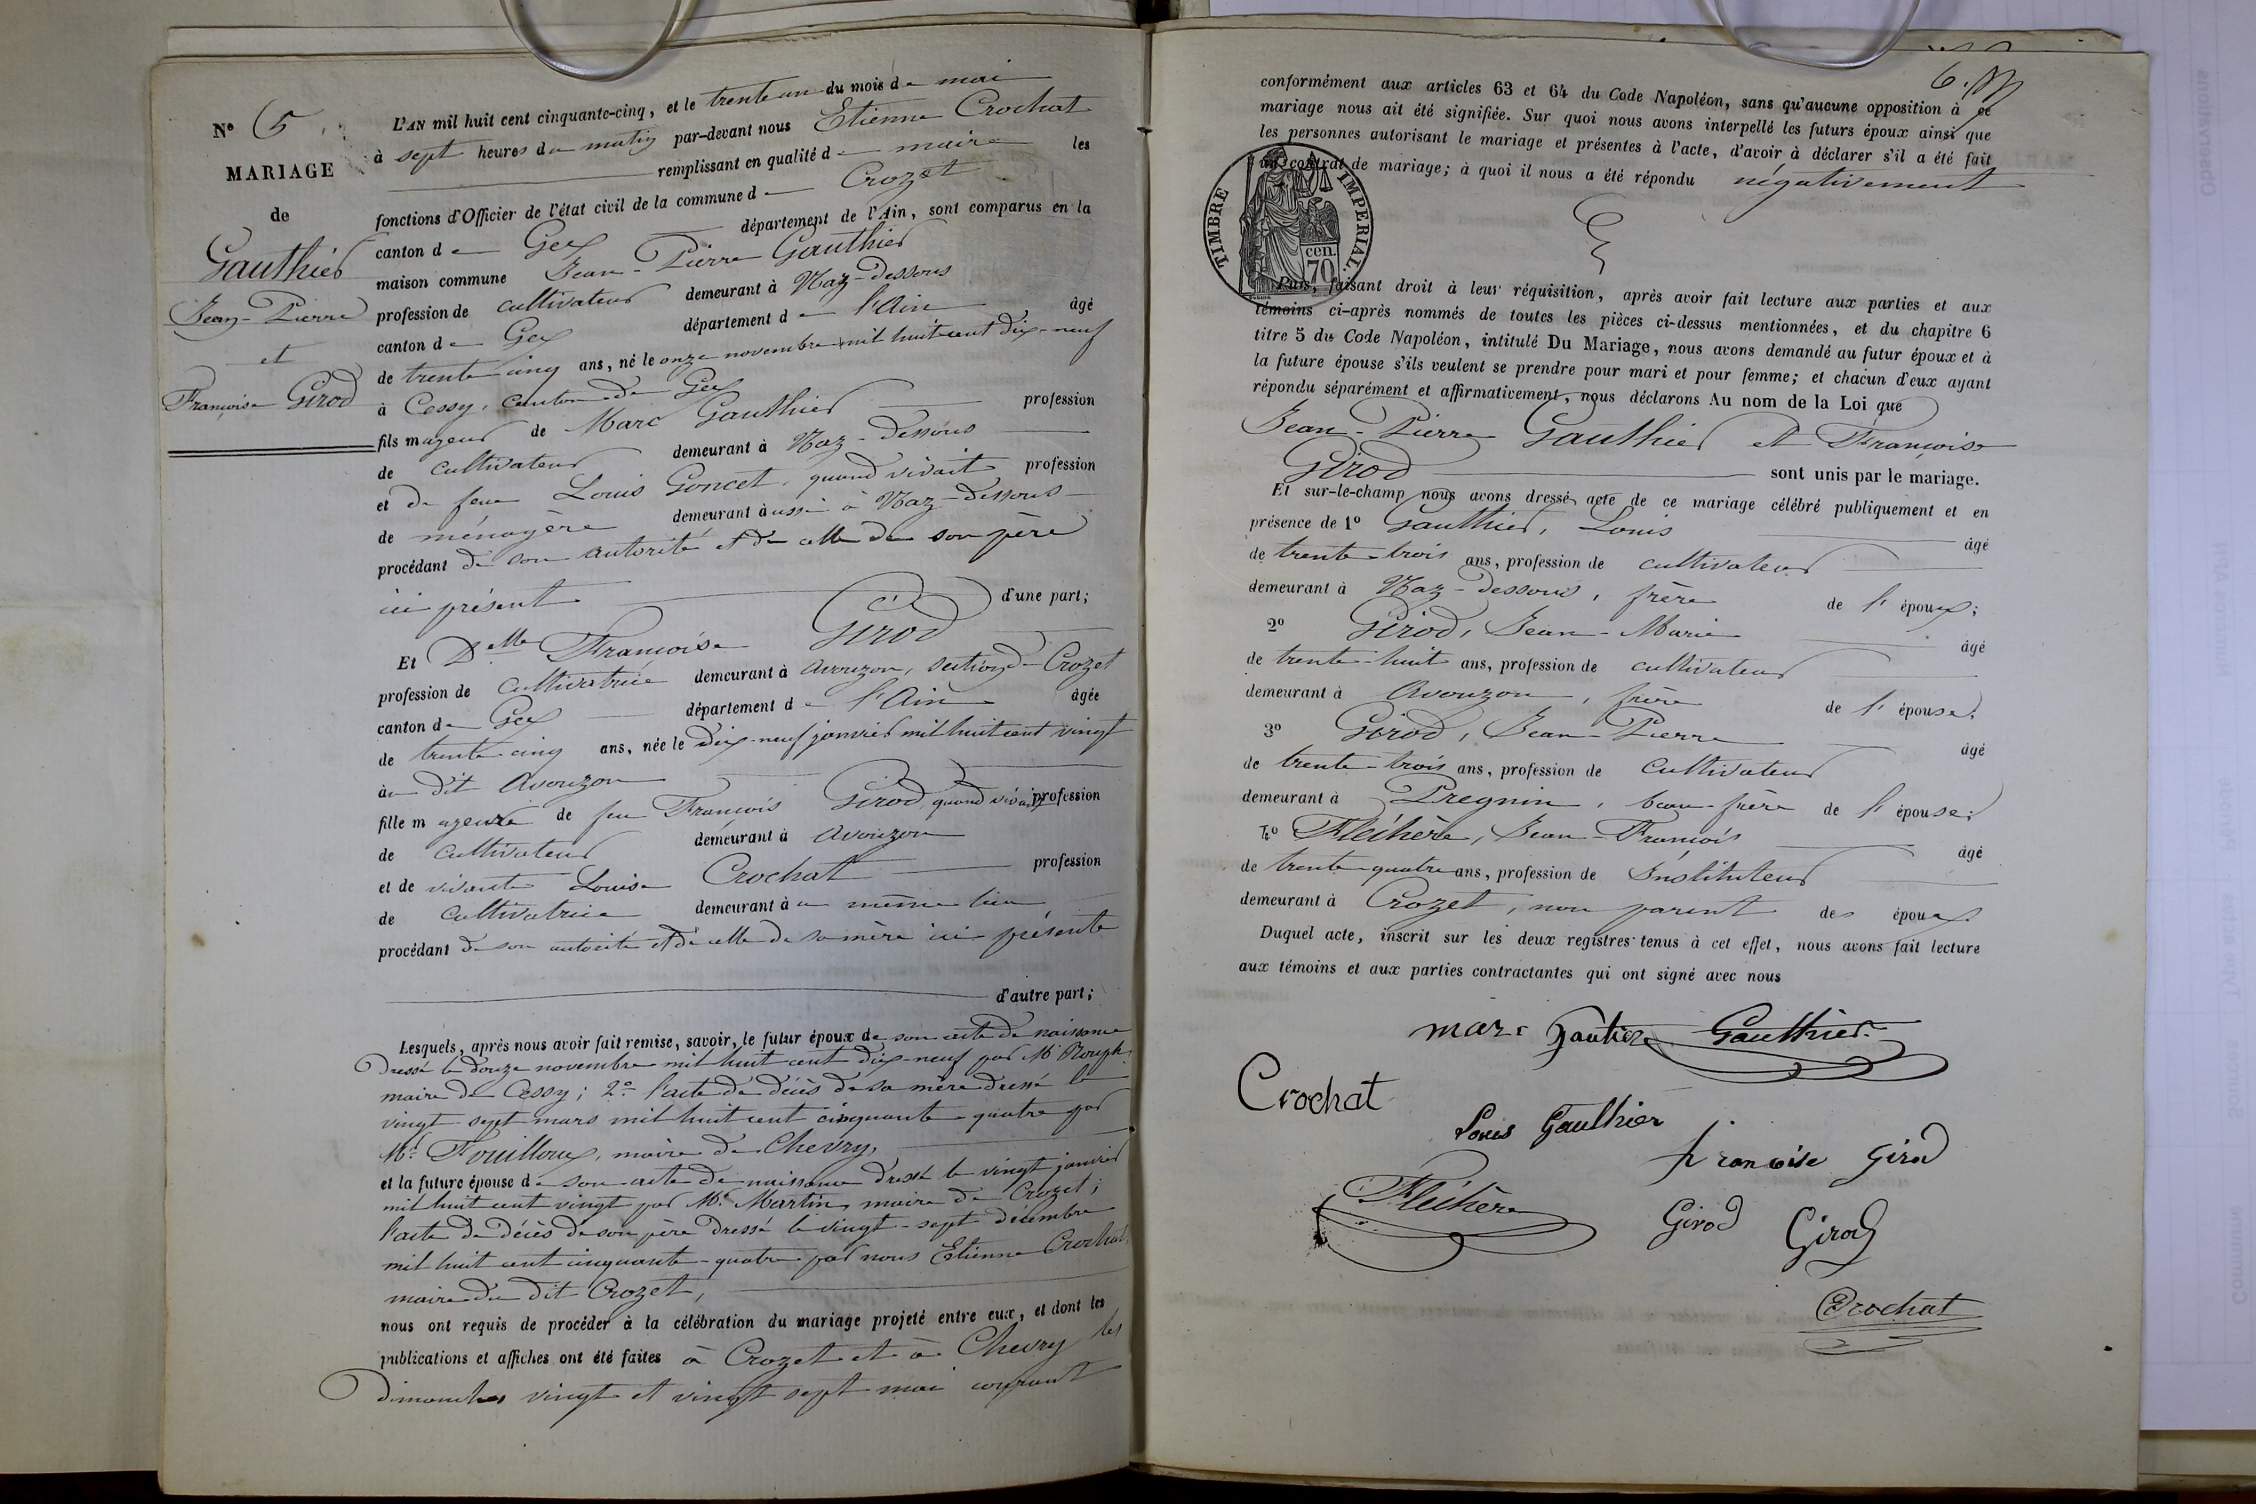 N° 5
MARIAGE
de
Gauthier
Jean-Pierre
et
Françoise Girod
L'AN mil huit cent cinquante-cinq, et le trente un du mois de mai
à sept heures du matin par-devant nous Etienne Crochat
remplissant en qualité de maire les
fonctions d'Officier de l'état civil de la commune de Crozet
canton de Gex département de l'Ain, sont comparus en la
maison commune Jean-Pierre Gauthier
profession de cultivateur demeurant à Naz-dessous
canton de Gex département de l'Ain âgé
de trente cinq ans, né le onze novembre mil huit cent dix-neuf
à Cessy, canton de Gex
fils majeur de Marc Gauthier profession
de cultivateur demeurant à Naz-dessous
et de feue Louis Goncet, quand vivait profession
de ménagère demeurant aussi à Naz-dessous
procédant de son autorité et de celle de son père
ici présent d'une part;
Et Delle Françoise Girod
profession de cultivatrice demeurant à Avouzon, section de Crozet
canton de Gex département de l'Ain âgée
de trente-cinq ans, née le dix-neuf janvier mil huit cent vingt
au dit Avouzon
fille majeure de feu François Girod, quand vivait profession
de cultivateur demeurant à Avouzon
et de vivante Louise Crochat profession
de cultivatrice demeurant au même lieu
procédant de son autorité et de celle de sa mère ici présente
d'autre part;
Lesquels, après nous avoir fait remise, savoir, le futur époux de son acte de naissance
dressé le douze novembre mil huit cent dix-neuf par Mr
maire de Cessy; 2° l'acte de décès de sa mère dressé le
vingt sept mars mil huit cent cinquante-quatre par
Mr Fouilloux, maire de Chevry,
et la future épouse de son acte de naissance dressé le vingt janvier
mil huit cent vingt par Mr Martin, maire de Crozet;
l'acte de décès de son père dressé le vingt-sept décembre
mil huit cent cinquante-quatre par nous Etienne Crochat,
maire du dit Crozet,
nous ont requis de procéder à la célébration du mariage projeté entre eux, et dont les
publications et affiches ont été faites à Crozet et à Chevry les
dimanches vingt et vingt sept mai courant
6.
conformément aux articles 63 et 64 du Code Napoléon, sans qu'aucune opposition à ce
mariage nous ait été signifiée. Sur quoi nous avons interpellé les futurs époux ainsi que
les personnes autorisant le mariage et présentes à l'acte, d'avoir à déclarer s'il a été fait
un contrat de mariage; à quoi il nous a été répondu négativement
TIMBRE IMPÉRIAL.
70 cen.
Puis, faisant droit à leur réquisition, après avoir fait lecture aux parties et aux
témoins ci-après nommés de toutes les pièces ci-dessus mentionnées, et du chapitre 6
titre 5 du Code Napoléon, intitulé Du Mariage, nous avons demandé au futur époux et à
la future épouse s'ils veulent se prendre pour mari et pour femme; et chacun d'eux ayant
répondu séparément et affirmativement, nous déclarons Au nom de la Loi que
Jean-Pierre Gauthier et Françoise
Girod sont unis par le mariage.
Et sur-le-champ nous avons dressé acte de ce mariage célébré publiquement et en
présence de 1° Gauthier, Louis âgé
de trente-trois ans, profession de cultivateur
demeurant à Naz-dessous, frère de l'époux;
2° Girod, Jean-Marie âgé
de trente-huit ans, profession de cultivateur
demeurant à Avouzon, frère de l'épouse;
3° Girod, Jean-Pierre âgé
de trente-trois ans, profession de cultivateur
demeurant à Pregnin, beau-frère de l'épouse;
4° Fléchère, Jean-François âgé
de trente-quatre ans, profession de Instituteur
demeurant à Crozet, non parent des époux.
Duquel acte, inscrit sur les deux registres tenus à cet effet, nous avons fait lecture
aux témoins et aux parties contractantes qui ont signé avec nous
marc gautier Gauthier
Crochat
Louis Gauthier
françoise Girod
Fléchère
Girod Girod
Crochat